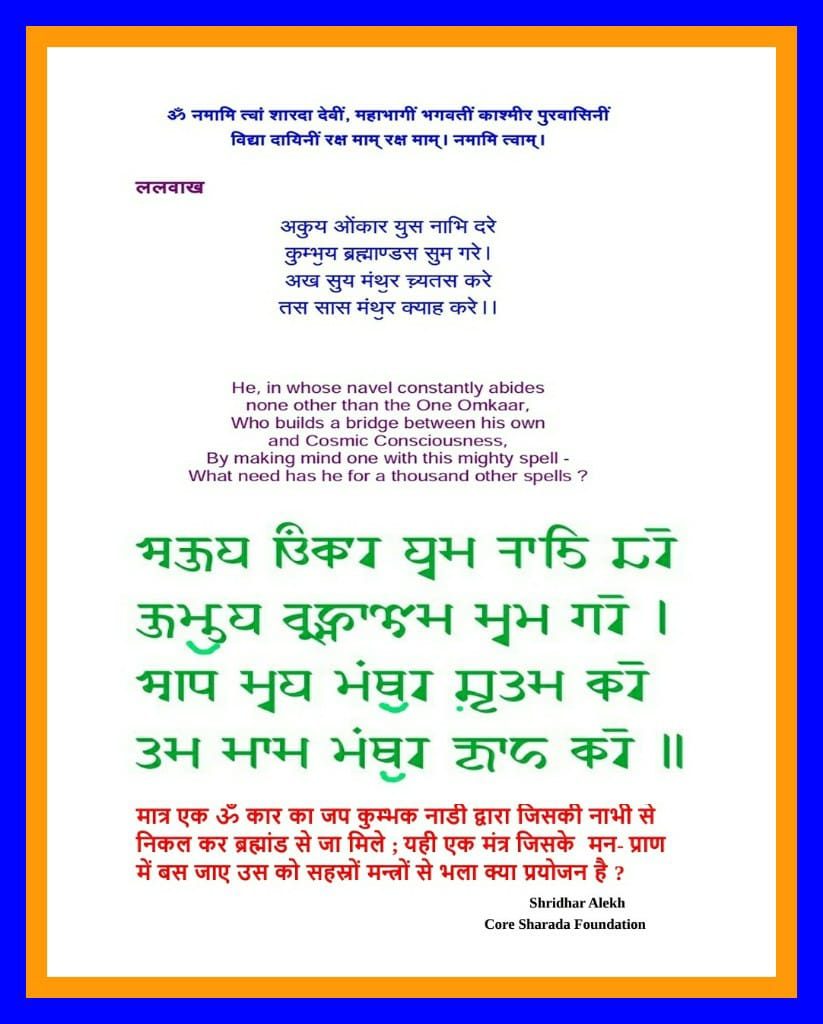 ॐ नमामि त्वां शारदा देवीं, महाभागीं भगवतीं काश्मीर पुरवासिनीं
विद्या दायिनीं रक्ष माम् रक्ष माम्। नमामि त्वाम्।
ललवाख
अकुय ओंकार युस नाभि दरे
कुम्भॖय ब्रह्माण्डस सुम गरे।
अख सुय मंथॖर च़्यतस करे
तस सास मंथॖर क्याह करे।।
He, in whose navel constantly abides
none other than the One Omkaar,
Who builds a bridge between his own
and Cosmic Consciousness,
By making mind one with this mighty spell -
What need has he for a thousand other spells ?
𑆃𑆑𑆶𑆪 𑆏𑆁𑆑𑆳𑆫 𑆪𑆶𑆱 𑆤𑆳𑆨𑆴 𑆢𑆫𑆼
𑆑𑆶𑆩𑇀𑆨𑆶𑆪 𑆧𑇀𑆫𑆲𑇀𑆩𑆳𑆟𑇀𑆝𑆱 𑆱𑆶𑆩 𑆓𑆫𑆼 𑇅
𑆃𑆒 𑆱𑆶𑆪 𑆩𑆁𑆡𑆶𑆫 𑆖𑇊𑇀𑆪𑆠𑆱 𑆑𑆫𑆼
𑆠𑆱 𑆱𑆳𑆱 𑆩𑆁𑆡𑆶𑆫 𑆑𑇀𑆪𑆳𑆲 𑆑𑆫𑆼 𑇆
मात्र एक ॐ कार का जप कुम्भक नाडी द्वारा जिसकी नाभी से
निकल कर ब्रह्मांड से जा मिले ; यही एक मंत्र जिसके मन- प्राण
में बस जाए उस को सहस्रों मन्त्रों से भला क्या प्रयोजन है ?
Shridhar Alekh
Core Sharada Foundation